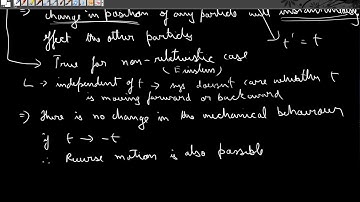 ⇒ change in position of any particle will instantaneously
effect the other particles
t' = t
→ True for non-relativistic case
(Einstein)
L → independent of t → sys doesn't care whether
t is moving forward or backward
⇒ There is no change in the mechanical behaviour
if t → -t
∴ Reverse motion is also possible